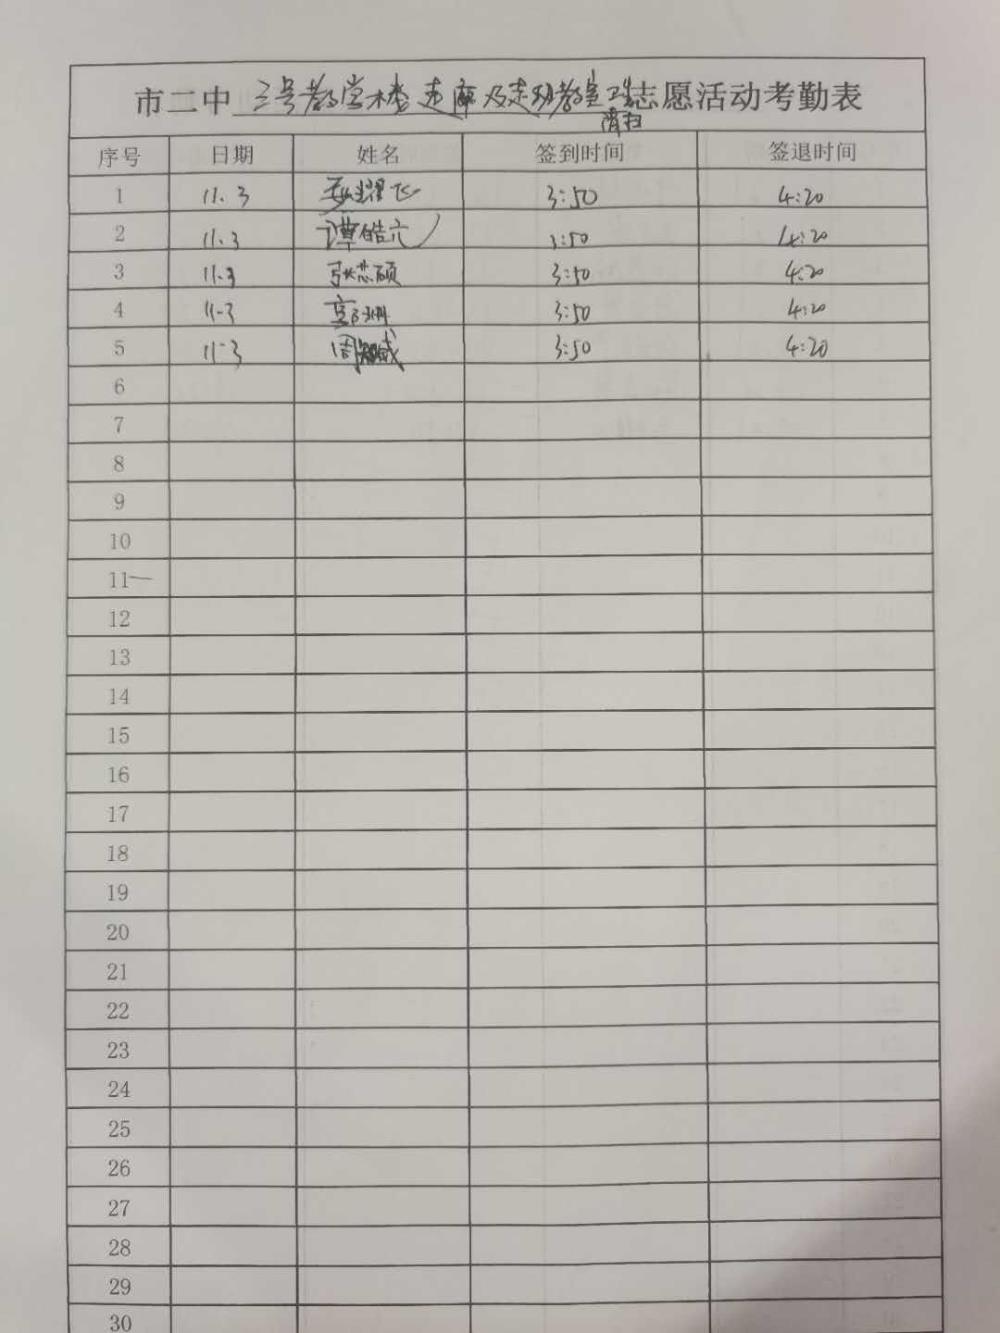 市二中三号教学楼走廊及走班教室 志愿活动考勤表
清扫
序号 日期 姓名 签到时间 签退时间
1 11.3 3:50 4:20
2 11.3 谭皓元 3:50 4:20
3 11.3 张芯硕 3:50 4:20
4 11-3 3:50 4:20
5 11-3 周知威 3:50 4:20
6
7
8
9
10
11
12
13
14
15
16
17
18
19
20
21
22
23
24
25
26
27
28
29
30